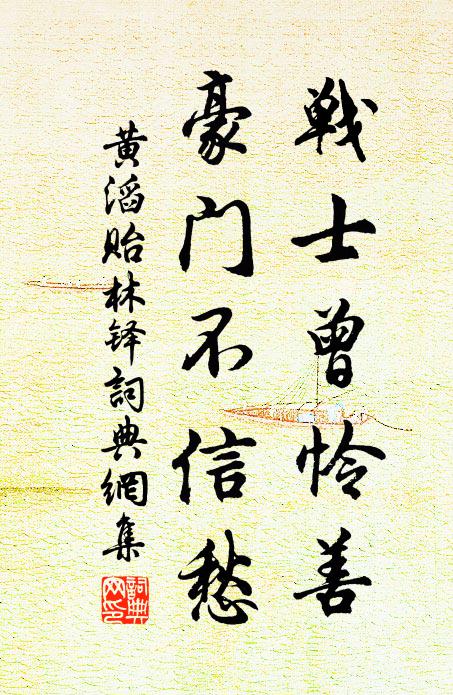 戦士曾怜善
豪门不信愁
黄滔贻林铎詞典網集
詞典